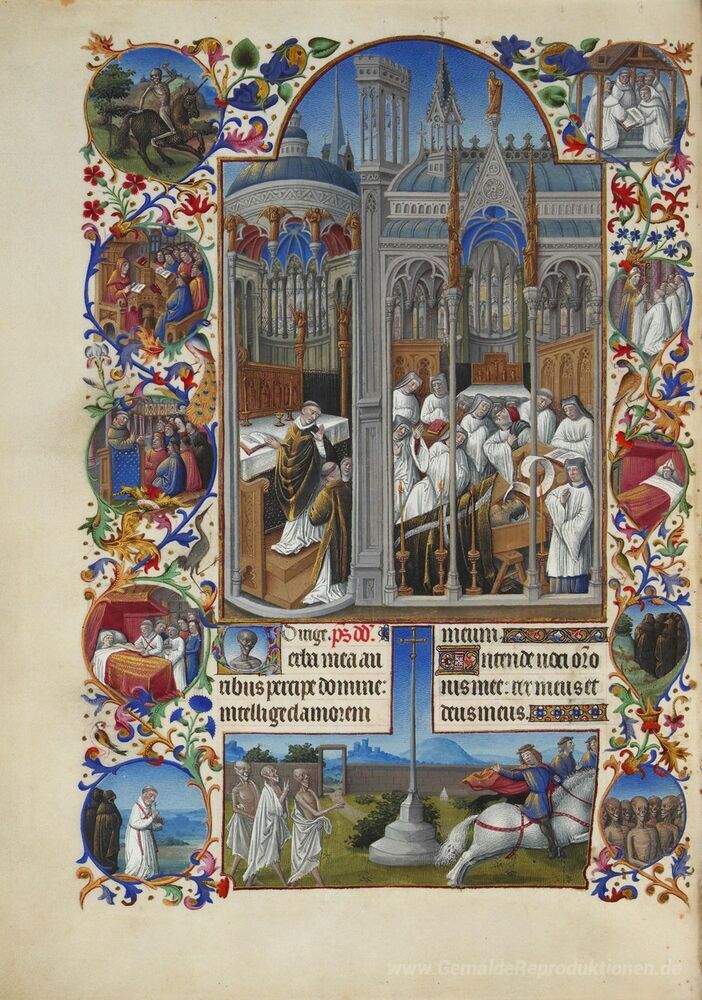 Dirige. ps dd.
Verba mea au
ribus percipe domine:
intellige clamorem
meum.
Intende uoci oro
nis mee: rex meus et
deus meus.
www.GemaldeReproduktionen.de